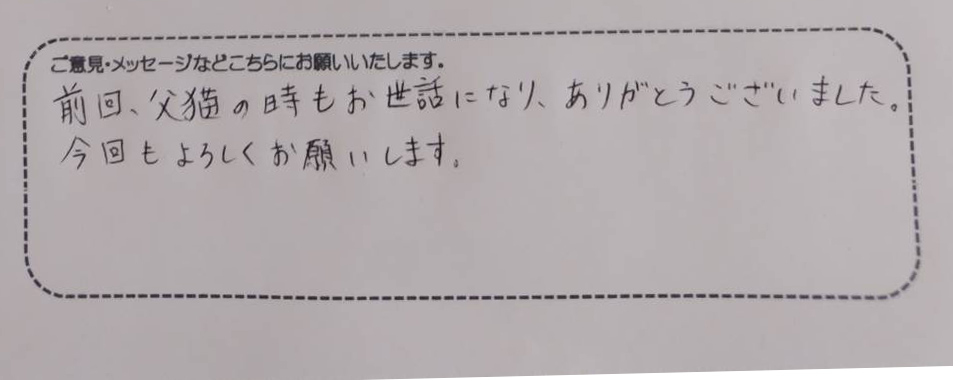 ご意見・メッセージなどこちらにお願いいたします。
前回、父猫の時もお世話になり、ありがとうございました。
今回もよろしくお願いします。